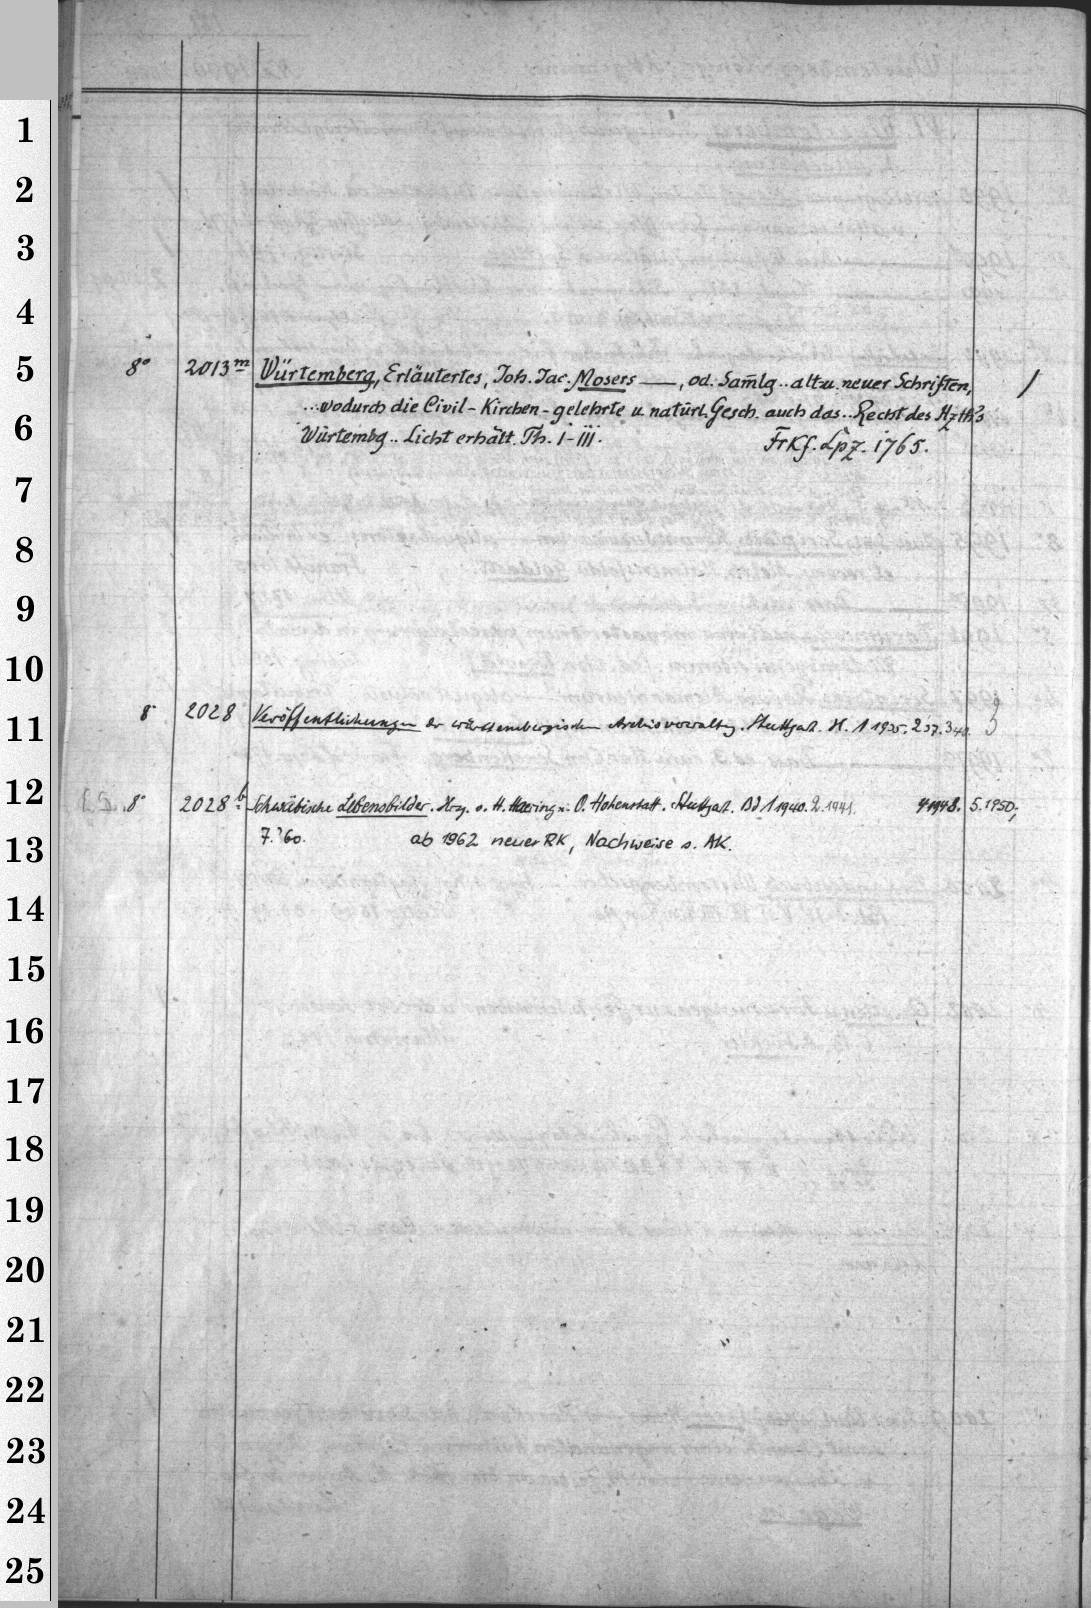 1
2
3
4
5
6
7
8
9
10
11
12
13
14
15
16
17
18
19
20
21
22
23
24
25
8° 2013 m Würtemberg, Erläutertes, Joh. Jac. Mosers —, od. Sam̄lg .. alt. u. neuer Schriften, 1
... wodurch die Civil- Kirchen- gelehrte u. natürl. Gesch. auch das .. Recht des Hzth's
Würtembg .. Licht erhält. Th. I-III. Frkf. Lpz. 1765.
8° 2028 Veröffentlichungen der württembergischen Archivverwaltg. Stuttgart. H. 1 1935. 2 37. 3 40. 3
8° 2028 b Schwäbische Lebensbilder. Hrg. v. H. Haering u. O. Hohenstatt. Stuttgart. Bd 1 1940. 2. 1941. 4 1948. 5. 1950;
7. '60. ab 1962 neuer RK, Nachweise s. AK.